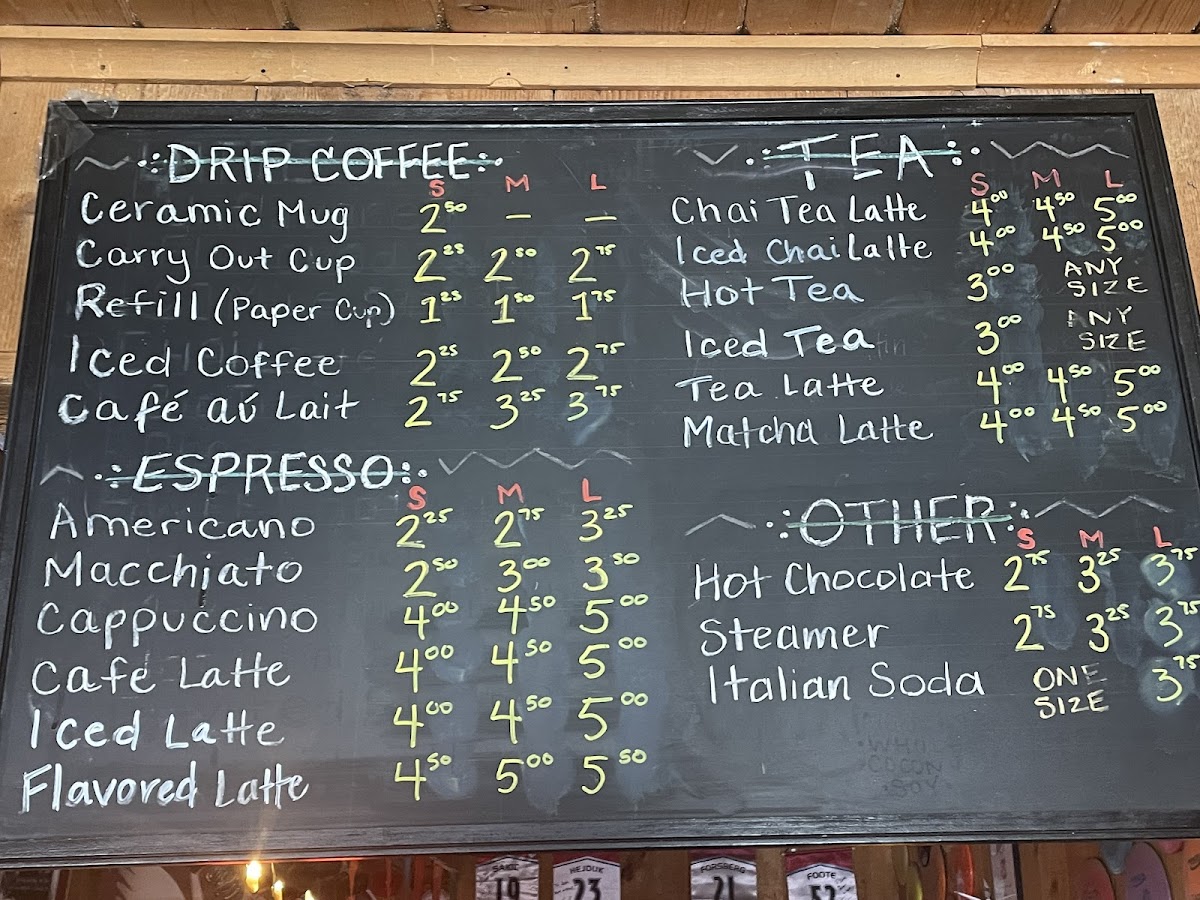 DRIP COFFEE
S M L
Ceramic Mug 2 50 — —
Carry Out Cup 2 25 2 50 2 75
Refill (Paper Cup) 1 25 1 50 1 75
Iced Coffee 2 25 2 50 2 75
Café aú Lait 2 75 3 25 3 75
ESPRESSO
S M L
Americano 2 25 2 75 3 25
Macchiato 2 50 3 00 3 50
Cappuccino 4 00 4 50 5 00
Café Latte 4 00 4 50 5 00
Iced Latte 4 00 4 50 5 00
Flavored Latte 4 50 5 00 5 50
TEA
S M L
Chai Tea Latte 4 00 4 50 5 00
Iced Chai Latte 4 00 4 50 5 00
Hot Tea 3 00 ANY
SIZE
Iced Tea 3 00 ANY
SIZE
Tea Latte 4 00 4 50 5 00
Matcha Latte 4 00 4 50 5 00
OTHER
S M L
Hot Chocolate 2 75 3 25 3 75
Steamer 2 75 3 25 3 75
Italian Soda ONE
SIZE 3 75
SAKIC HEJDUK FORSBERG FOOTE
19 23 21 52